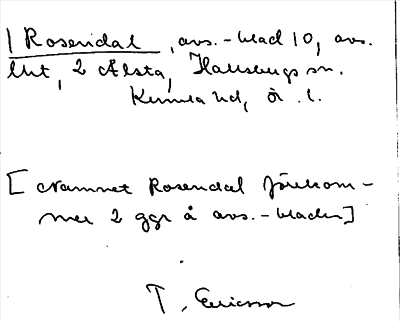 1 Rosendal, avs.-blad 10, avs.
litt, 2 Alsta, Hallsbergs sn.
Kumla hd, Ör. l.
[Namnet Rosendal förekom-
mer 2 ggr å avs.-bladen]
T. Ericsson